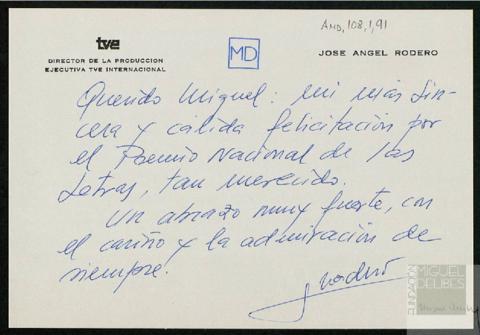 AMD, 108, 1, 91
tve
MD
DIRECTOR DE LA PRODUCCION
EJECUTIVA TVE INTERNACIONAL
JOSE ANGEL RODERO
Querido Miguel: mi más sin-
cera y cálida felicitación por
el Premio Nacional de las
Letras, tan merecido.
Un abrazo muy fuerte, con
el cariño y la admiración de
siempre.
Rodero
FUNDACIÓN
MIGUEL
DELIBES